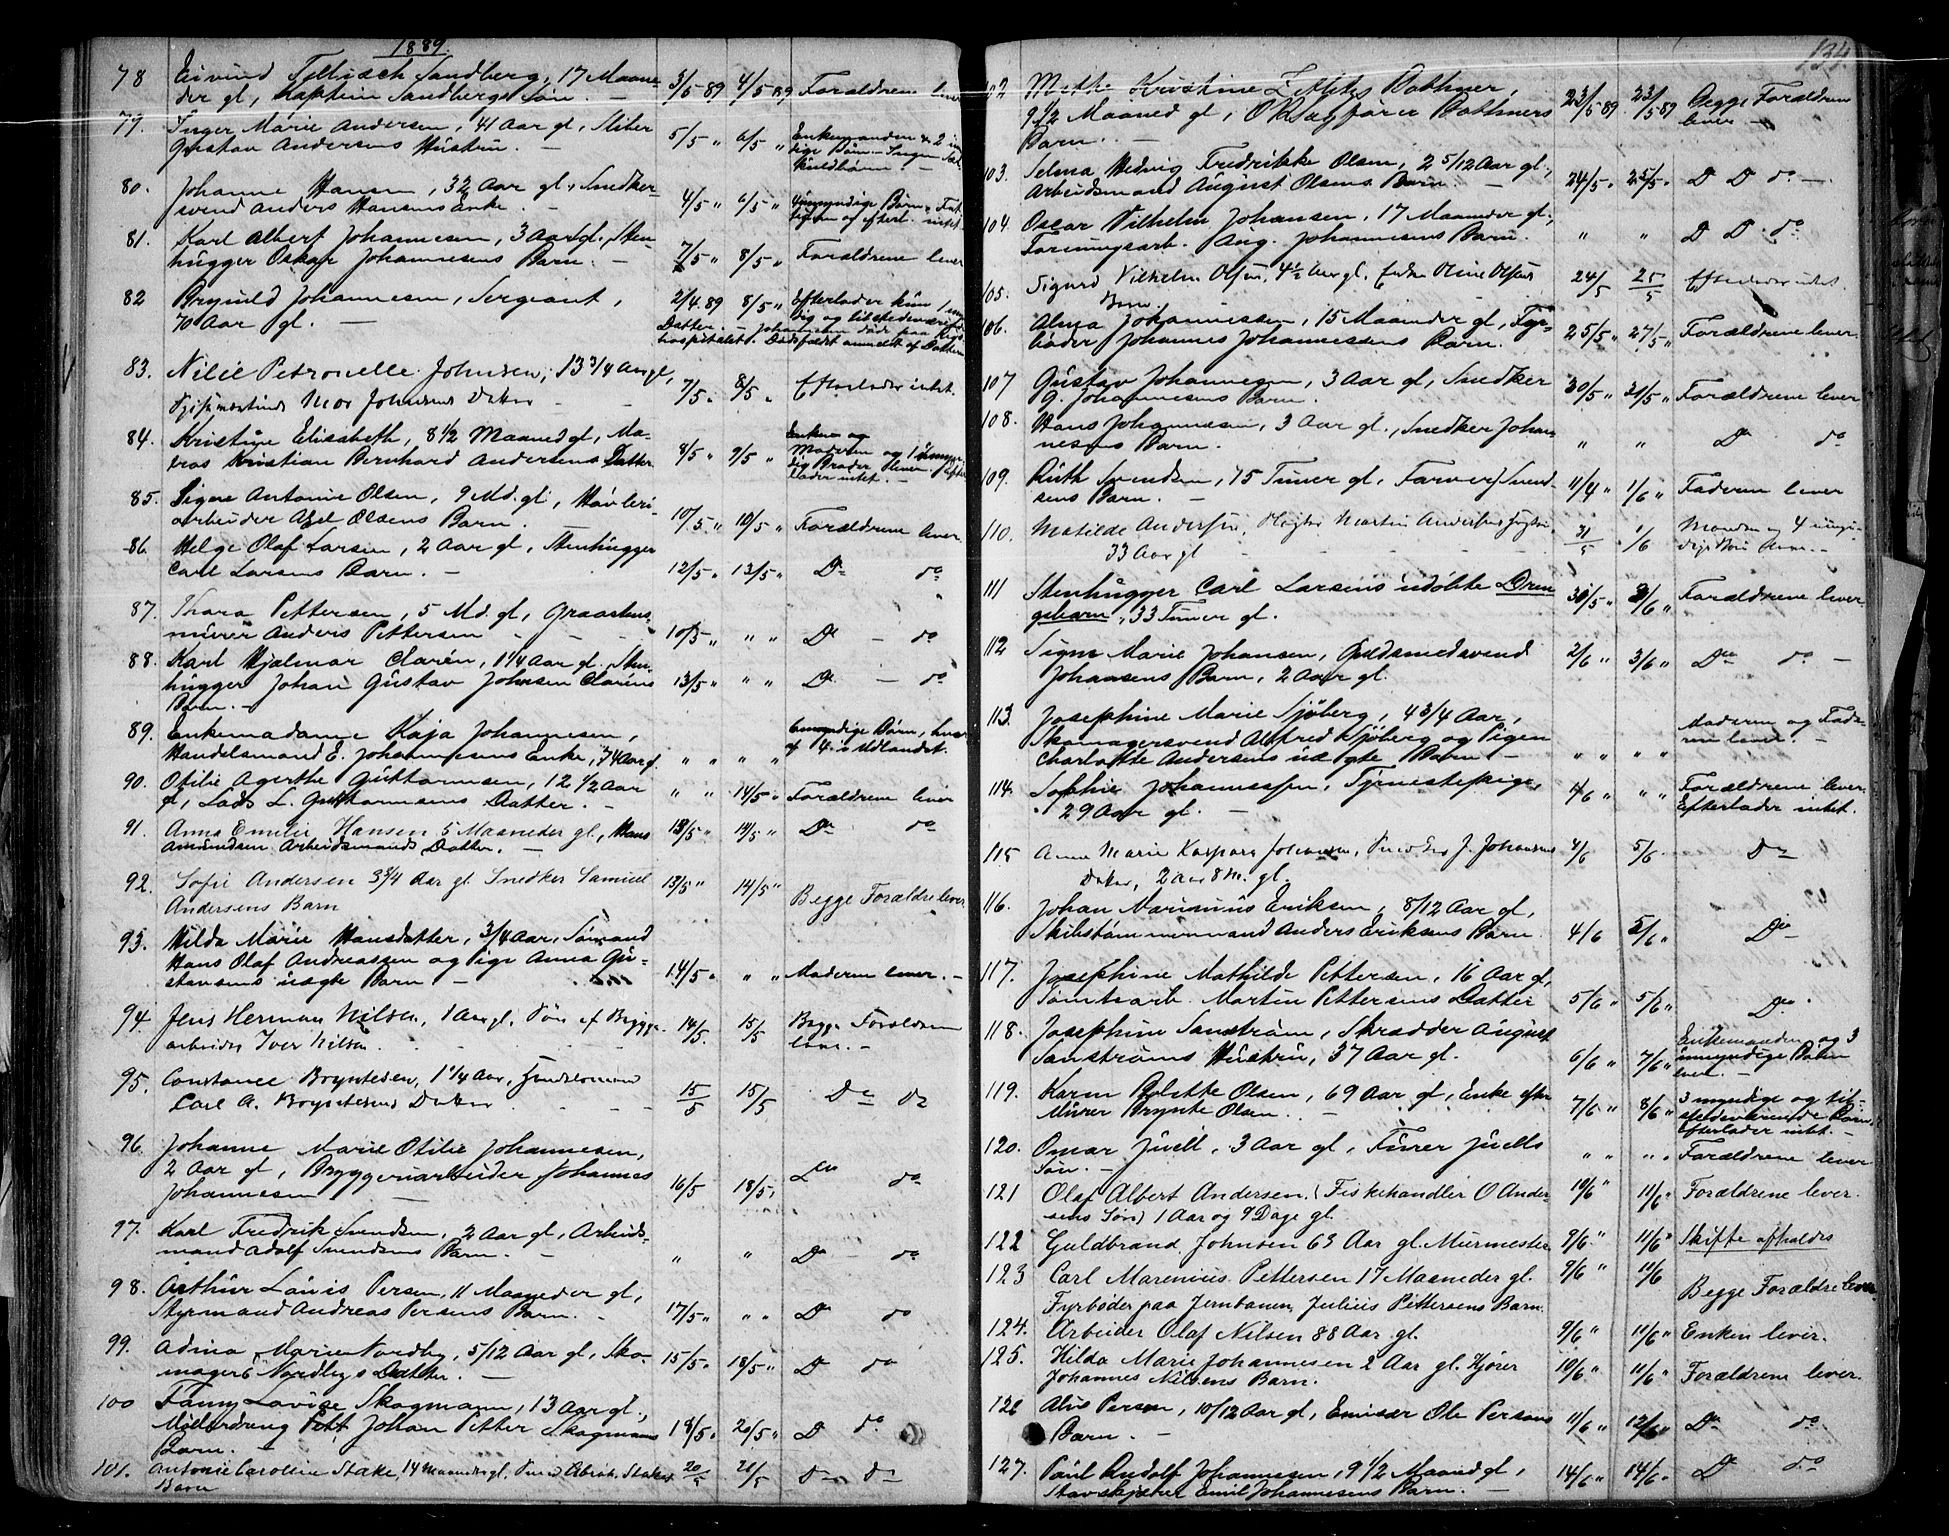 1889.
78 Eivind Sandberg, 17 Maane-
der gl, Kaptein Sandbergs Søn. — 3/5 89 4/5 89 Forældrene lever
79. Inger Marie Andersen, 41 Aar gl,
Gustav Andersens Hustru. — 5/5 " 6/5 " Enkemanden & 2
dige Børn
80. Johanne Hansen, 32 Aar gl, Snedker-
svend Anders Hansens Enke. — 4/5 " 6/5 " Børn
81. Karl Albert Johannesen, 3 Aar gl. Sten-
hugger Oskar Johannesens Barn. — 7/5 " 8/5 " Forældrene lever
82 Brynild Johannesen, Sergeant, 2/4.89 8/5 " Efterlader kun 1 myn-
70 Aar gl. — dig og tilstedeværende
Datter. — Johannesen døde paa Rigs-
hospitalet. Dødsfaldet anmeldt af Datteren
83. Nilie Petronelle Johnsen, 13 3/4 Aar gl,
Mor Johnsens Datter 7/5 " 8/5 " Efterlader intet.
84. Kristine Elisabeth, 8 1/2 Maaned gl, Ma-
tros Kristian Bernhard Andersens Datter 8/5 " 9/5 " Moderen og 1 umyn-
dig Broder lever. Efter-
lader intet. —
85. Signe Antonie Olsen, 9 Md. gl, Høvleri-
arbeider Axel Olsens Barn. — 10/5 " 10/5 " Forældrene lever.
86. Helge Olaf Larsen, 2 Aar gl, Stenhugger
Carl Larsens Barn. — 12/5 " 13/5 " Do do
87. Thora Pettersen, 5 Md. gl, Graastens-
murer Anders Pettersen 10/5 " " " Do — do
88. Karl Hjalmar Clarén, 1 1/4 Aar gl. Sten-
hugger Johan Gustav Johnsen Claréns 13/5 " " " Do — do
Barn. —
89. Enkemadame Kaja Johannesen, 6 myndige Børn, hvor-
Handelsmand E. Johannesens Enke, 74 Aar gl. " " " " af 4 i Udlandet.
90. Otilie Agerthe Guttormsen, 12 1/2 Aar
gl, Lods L. Guttormsens Datter. — " " 14/5 " Forældrene lever
91. Anna Emilie Hansen 5 Maaneder gl, Hans
Amundsen Arbeidsmands Datter. — 13/5 " 14/5 " Do do
92. Sofie Andersen 3 3/4 Aar gl. Snedker Samuel 13/5 " 14/5 "
Andersens Barn Begge Forældre lever
93. Hilda Marie Hansdatter, 3/4 Aar, Sømand
Hans Olaf Andreassen og Pige Anna Gu-
stavsens uægte Barn — 14/5 " " " Moderen lever. —
94. Jens Herman Nilsen, 1 Aar gl. Søn af Brygge-
arbeider Iver Nilsen. 14/5. 15/5 Begge Forældrene
lever. —
95. Constance Bryntesen, 1 1/4 Aar,
Carl A. Bryntesens Datter 15/5 15/5 Do do
96. Johanne Marie Otilie Johannesen,
2 Aar gl, Bryggeriarbeider Johannes
Johannesen — 16/5 18/5 " Do do
97. Karl Fredrik Svendsen, 2 Aar gl, Arbeids-
mand Adolf Svendsens Barn. — " " Do do
98. Arthur Louis Persen, 11 Maaneder gl,
Styrmand Andreas Persens Barn. — 17/5 " " " Do do
99. Adina Marie Nordby, 5/12 Aar gl, Sko-
mager Nordbys Datter. — 15/5 " 18/5 " Do do
100 Fanny Lovise Skogmann, 13 Aar gl.,
Møllerdreng Johan Petter Skogmanns 18/5 " 20/5 " Do do
Barn. —
101. Antonie Caroline Stake, 14 Maaneder gl, Stakes 20/5 21/5 Do do
Barn
134.
102 Mette Kristine Bothner,
9 1/2 Maaned gl, O R Sagfører Bothners 23/5 89 23/5 89 Begge Forældrene
Barn. — lever —
103. Selma Hedvig Fredrikke Olsen, 2 5/12 Aar gl,
Arbeidsmand August Olsens Barn — 24/5 " 25/5 " Do Do do —
104. Oscar Vilhelm Johansen, 17 Maaneder gl,
Aug. Johannesens Barn. " " D D do
105. Sigurd Vilhelm Olsen, 4 1/2 Aar gl. Enke Oline Olsens
Barn. 24/5 25/5 Efterlader intet.
106. Alma Johannessen, 15 Maaneder gl, Fyr-
bøder Johannes Johannessens Barn. 25/5 " 27/5 " Forældrene lever
107 Gustav Johannesen, 3 Aar gl, Snedker
G. Johannesens Barn. 30/5 " 31/5 " Forældrene lever
108. Hans Johannesen, 3 Aar gl., Snedker Johan-
nesens Barn. — " " Do do
109. Ruth Svendsen, 15 Timer gl, Farver Svend-
sens Barn. — 11/4 " 1/6 " Faderen lever
110. Matilde Andersen, Martin Andersens
33 Aar gl 31/5 1/6 Manden og 4 umyn-
dige Børn lever. —
111 Stenhugger Carl Larsens udøbte Dren-
gebarn, 33 Timer gl. 30/5 " 3/6 " Forældrene lever
112 Signe Marie Johansen, Guldsmedsvend
Johansens Barn, 2 Aar gl. 2/6 " 3/6 " Do do —
113. Josephine Marie Sjöberg, 4 3/4 Aar,
Skomagersvend Alfred Sjöberg og Pigen Moderen og Fade-
Charlotte Andersens uægte Barn — " " " " ren lever. —
114. Sophie Johannessen, Tjenestepige,
29 Aar gl. — 4/6 " " " Forældrene lever.
Efterlader intet.
115 Anne Marie Kaspara Johansen, J. Johansens
Datter, 2 Aar 8 M. gl. 4/6 5/6 Do
116. Johan Marinius Eriksen, 8/12 Aar gl,
Skibstømmermand Anders Eriksens Barn. 4/6 5/6 " Do
117. Josephine Mathilde Pettersen, 16 Aar gl,
Tomtearb. Martin Pettersens Datter 5/6 " 5/6 " Do
118. Josephine Sanström, Skrædder August
Sanströms Hustru, 37 Aar gl. 6/6 " 7/6 " Enkemanden og 3
umyndige Børn
lever. —
119. Karen Olette Olsen, 69 Aar gl, Enke efter
Murer Brynte Olsen. — 7/6 " 8/6 " 3 myndige og til-
stedeværende Børn.
Efterlader intet. —
120. Omar Juell, 3 Aar gl, Furer Juells
Søn. — " " " " Forældrene lever
121 Olaf Albert Andersen, (Fiskehandler O Ander-
sens Søn) 1 Aar og 9 Dage gl. 10/6 " 11/6 " Forældrene lever.
122 Guldbrand Johnsen 63 Aar gl. Murmester 9/6 " 11/6 " Skifte afholdes
123 Carl Marenius Pettersen 17 Maaneder gl. 9/6 " 11/6
Fyrbøder paa Jernbanen, Julius Pettersens Barn. Begge Forældre lever
124. Arbeider Olaf Nilsen 88 Aar gl. 9/6 " 11/6 " Enken lever.
125. Hilda Marie Johannesen 2 Aar gl. Kjører
Johannes Nilsens Barn. 10/6 " 11/6 " Forældrene lever.
126 Alvis Persen, 10/12 Aar gl, Emisær Ole Persens
Barn. — 11/6 " 12/6 " Do do
127. Paul Rudolf Johannesen, 9 1/2 Maaned gl,
Stavskjærer Emil Johannesens Barn. — 14/6 " 14/6 " Do do